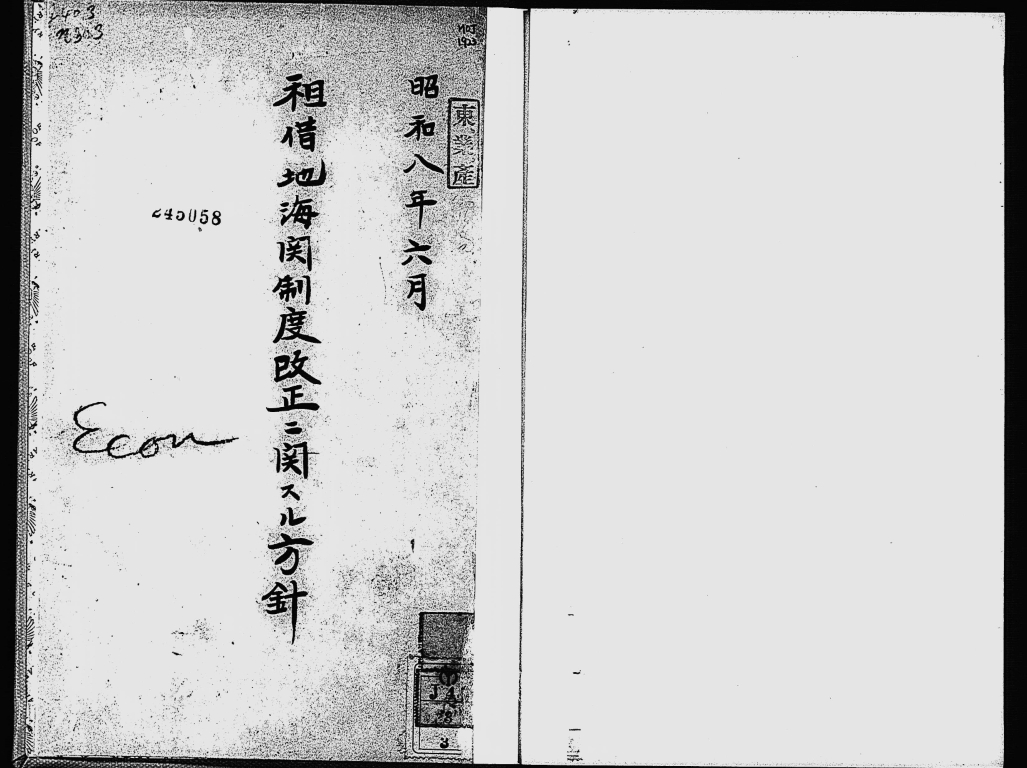 昭和八年六月
租借地海関制度改正ニ関スル方針
東業産
245058
Econ
J4
28
3